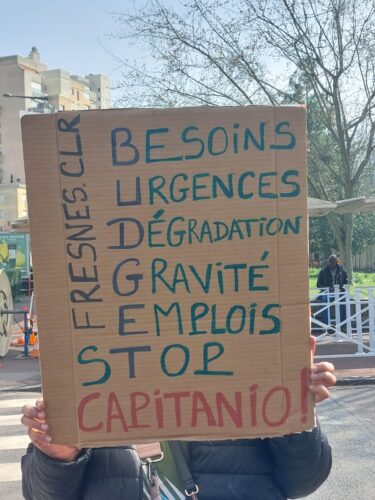 FRESNES.CLR
BESOINS
URGENCES
DÉGRADATION
GRAVITÉ
EMPLOIS
STOP
CAPITANIO!